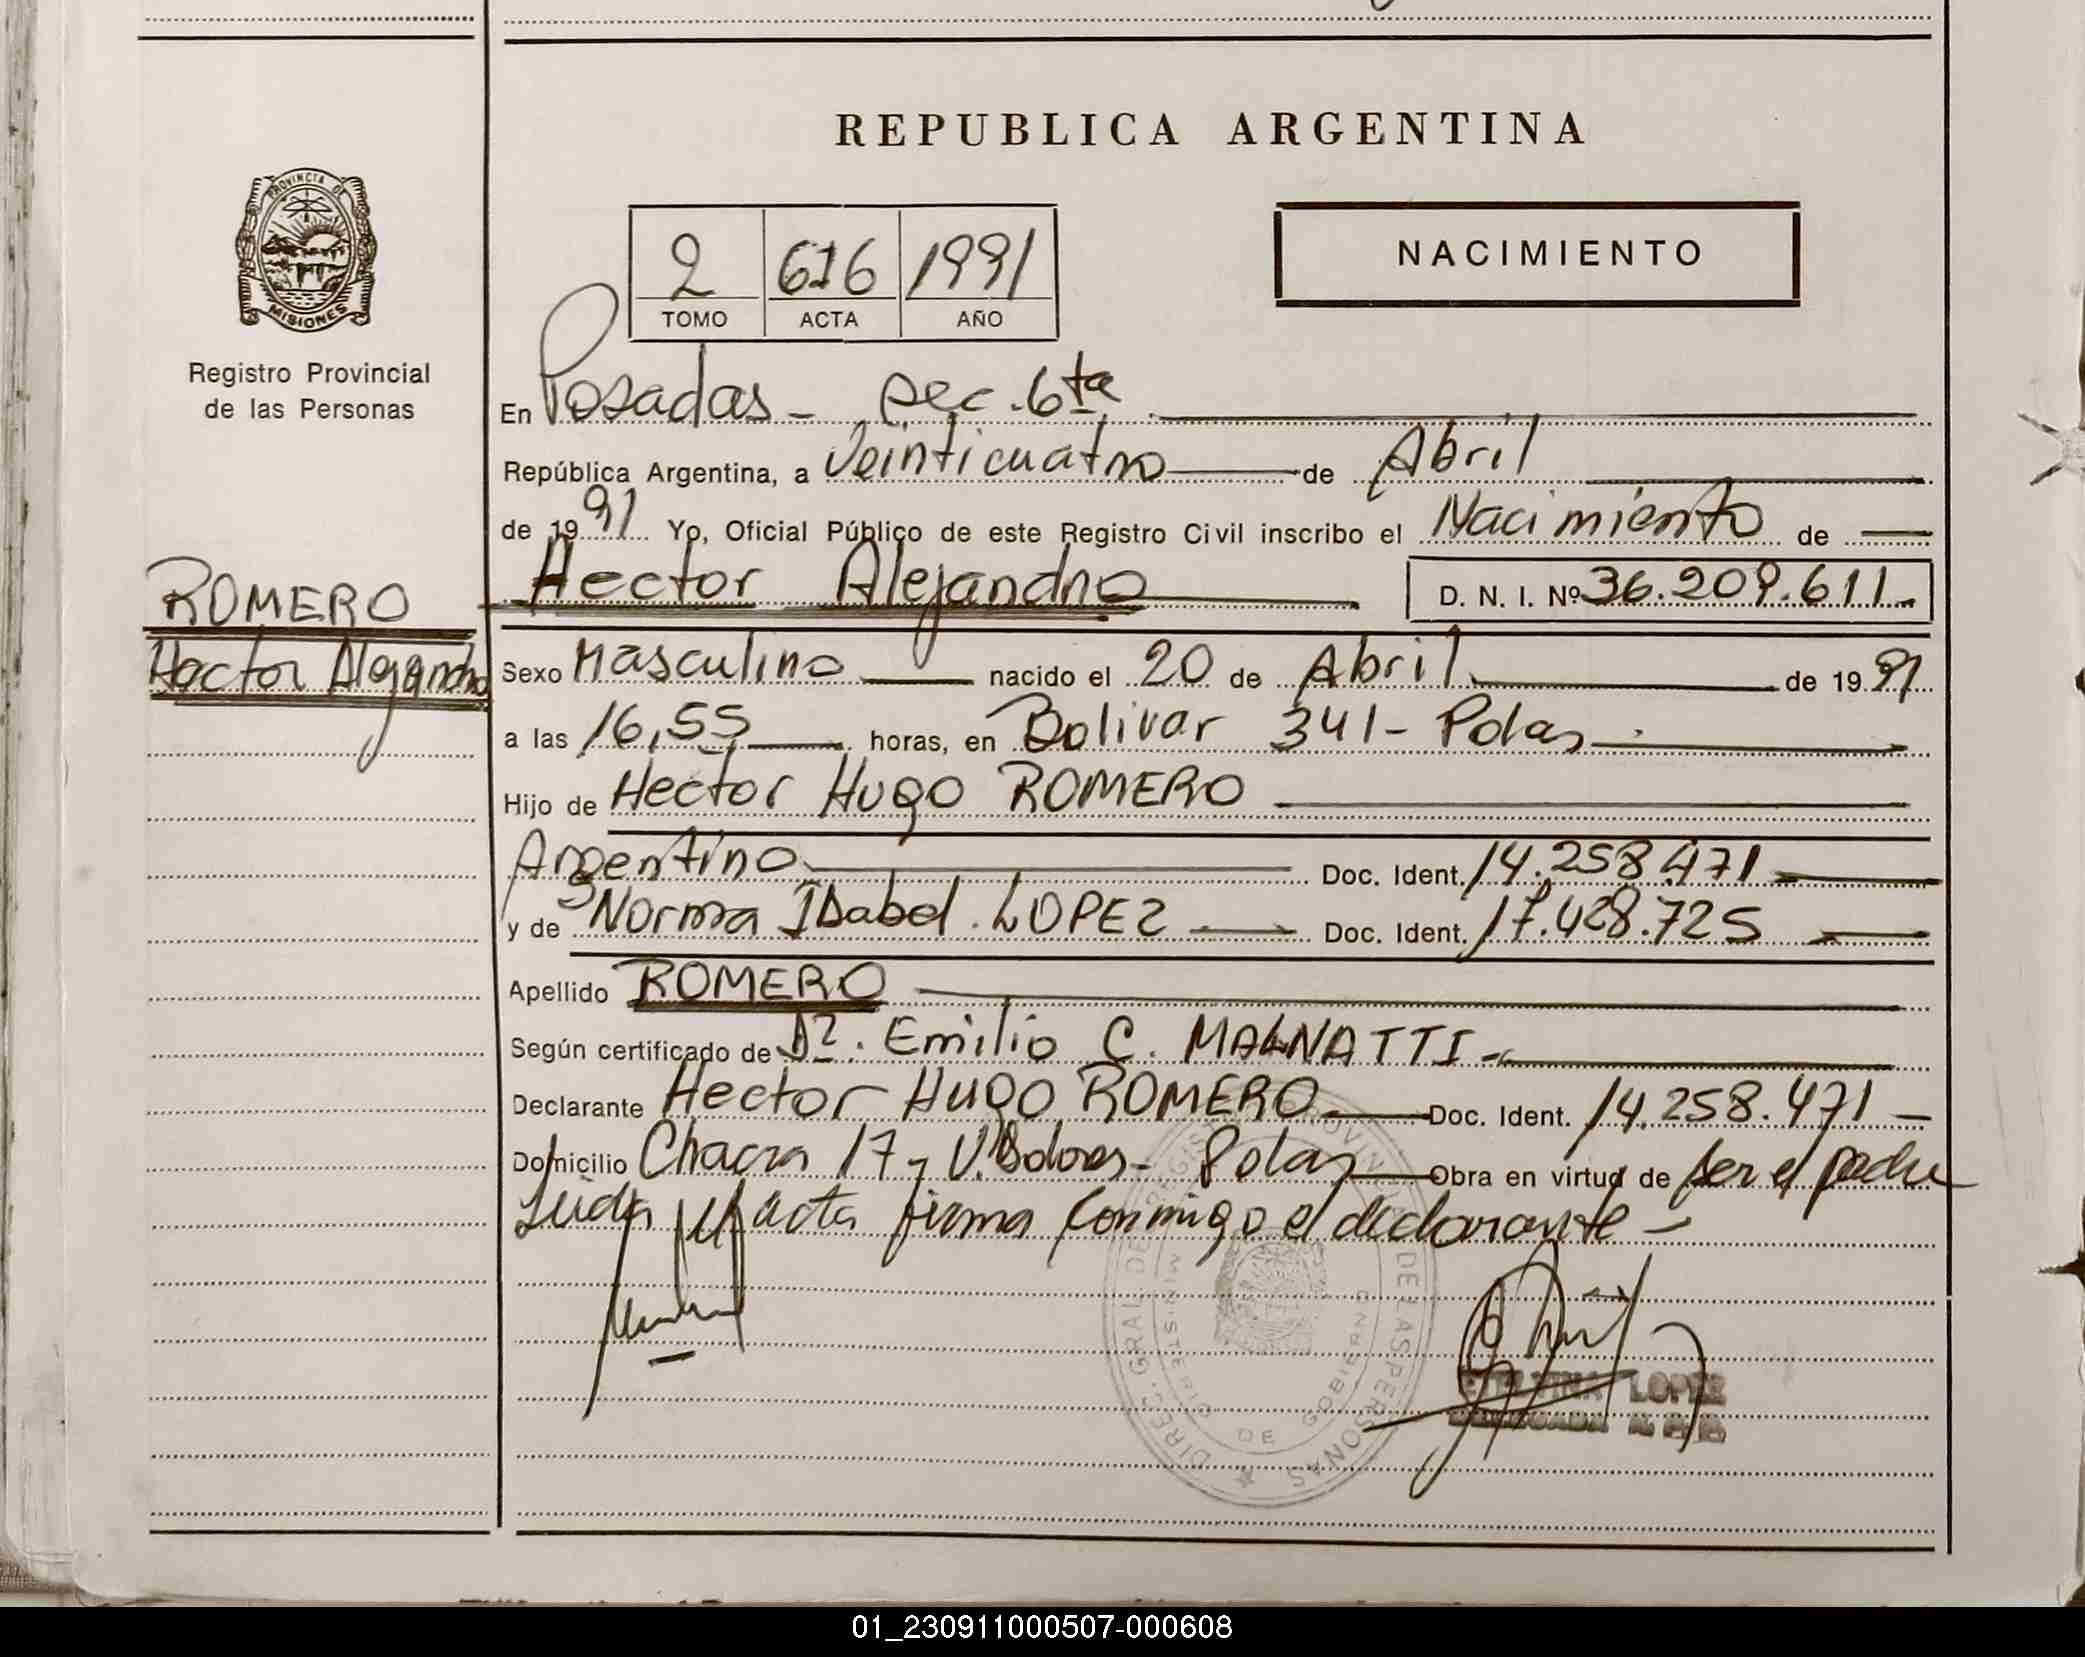 REPUBLICA ARGENTINA
PROVINCIA DE MISIONES
Registro Provincial
de las Personas
NACIMIENTO
2 616 1991
TOMO ACTA AÑO
En Posadas - sec. 6ta
República Argentina, a Veinticuatro de Abril
de 1991 Yo, Oficial Público de este Registro Civil inscribo el Nacimiento de
ROMERO
Hector Alejandro
Hector Alejandro D. N. I. Nº 36.209.611
Sexo Masculino nacido el 20 de Abril de 1991
a las 16,55 horas, en Bolivar 341 - Pdas
Hijo de Hector Hugo ROMERO
Argentino Doc. Ident. 14.258.471
y de Norma Isabel LOPEZ Doc. Ident. 17.428.725
Apellido ROMERO
Según certificado de Dr. Emilio C. MAGNATTI
Declarante Hector Hugo ROMERO Doc. Ident. 14.258.471
Domicilio Chacra 17 - Pdas Obra en virtud de ser el padre
Leida el acta firma conmigo el declarante -
DIREC. GRAL. DEL REGISTRO PROVINCIAL DE LAS PERSONAS
MINISTERIO DE GOBIERNO
LOPEZ
01_230911000507-000608